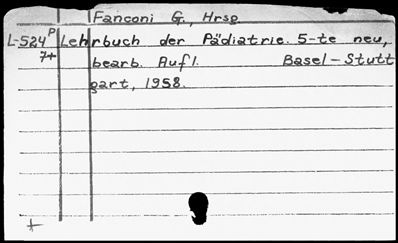 Fanconi G., Hrsg.
L-524P Lehrbuch der Pädiatrie. 5-te neu,
7+ bearb. Aufl. Basel-Stutt
gart, 1958.
+